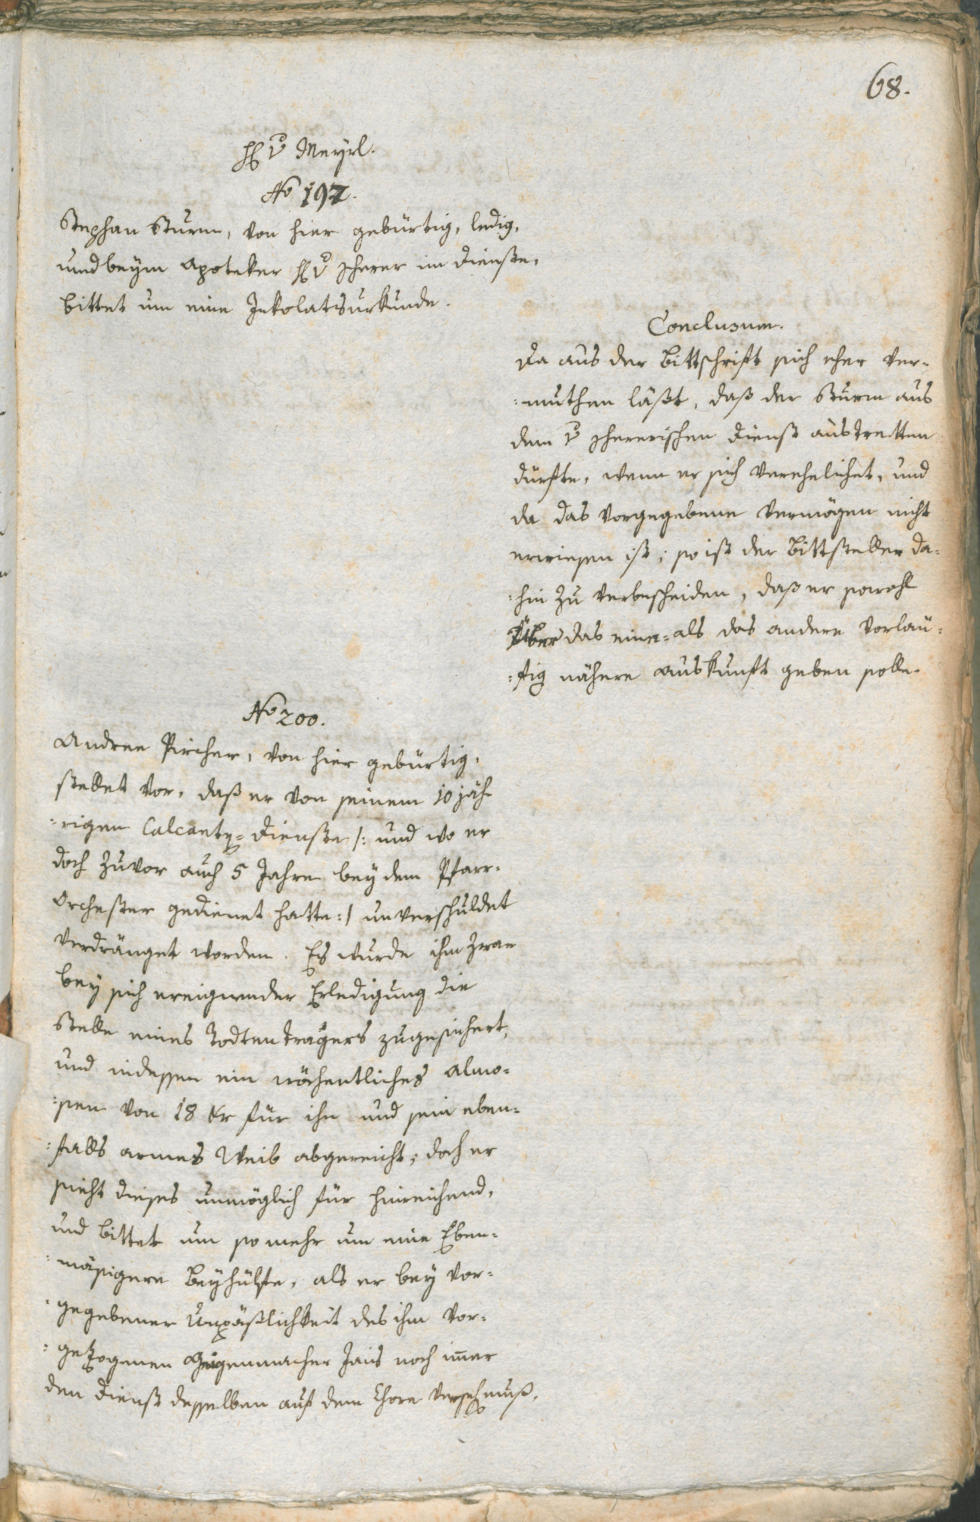 68.
H: v Meyrl.
No 197.
Stephan Sturm, von hier gebürtig, ledig,
und beym Apoteker H: v Scherer im Dienste,
bittet um eine Inkolatsurkunde.
Conclusum.
Da aus der Bittschrift sich eher ver-
:muthen läßt, daß der Sturm aus
dem v Schererischen Dienst austretten
dürfte, wenn er sich verehelichet, und
da das vorgegebene Vermögen nicht
erwiesen ist; so ist der Bittsteller da-
:hin zu verbescheiden, daß er sowohl
über das eine- als das andere vorläu-
:fig nähere Auskunft geben solle.
No 200.
Andree Pircher, von hier gebürtig,
stellet vor, daß er von seinem 10 jäh-
:rigen Calcantz-Dienste /: und wo er
doch zuvor auch 5 Jahre bey dem Pfarr-
Orchester gedienet hatte :/ unverschuldet
verdränget worden. Es wurde ihm zwar
bey sich ereignender Erledigung die
Stelle eines Todtentragers zugesichert,
und indessen ein wöchentliches Almo-
:sen von 18 kr für ihn und sein eben-
:falls armes Weib abgereicht; doch er
sieht dieses unmöglich für hinreichend,
und bittet um so mehr um eine Eben-
:mäsigere Beyhülfe, als er bey vor-
:gegebener Unpäßlichkeit des ihm vor-
:gezogenen Geigenmacher Jais noch imer
den Dienst desselben auf dem Chore versehen muß.